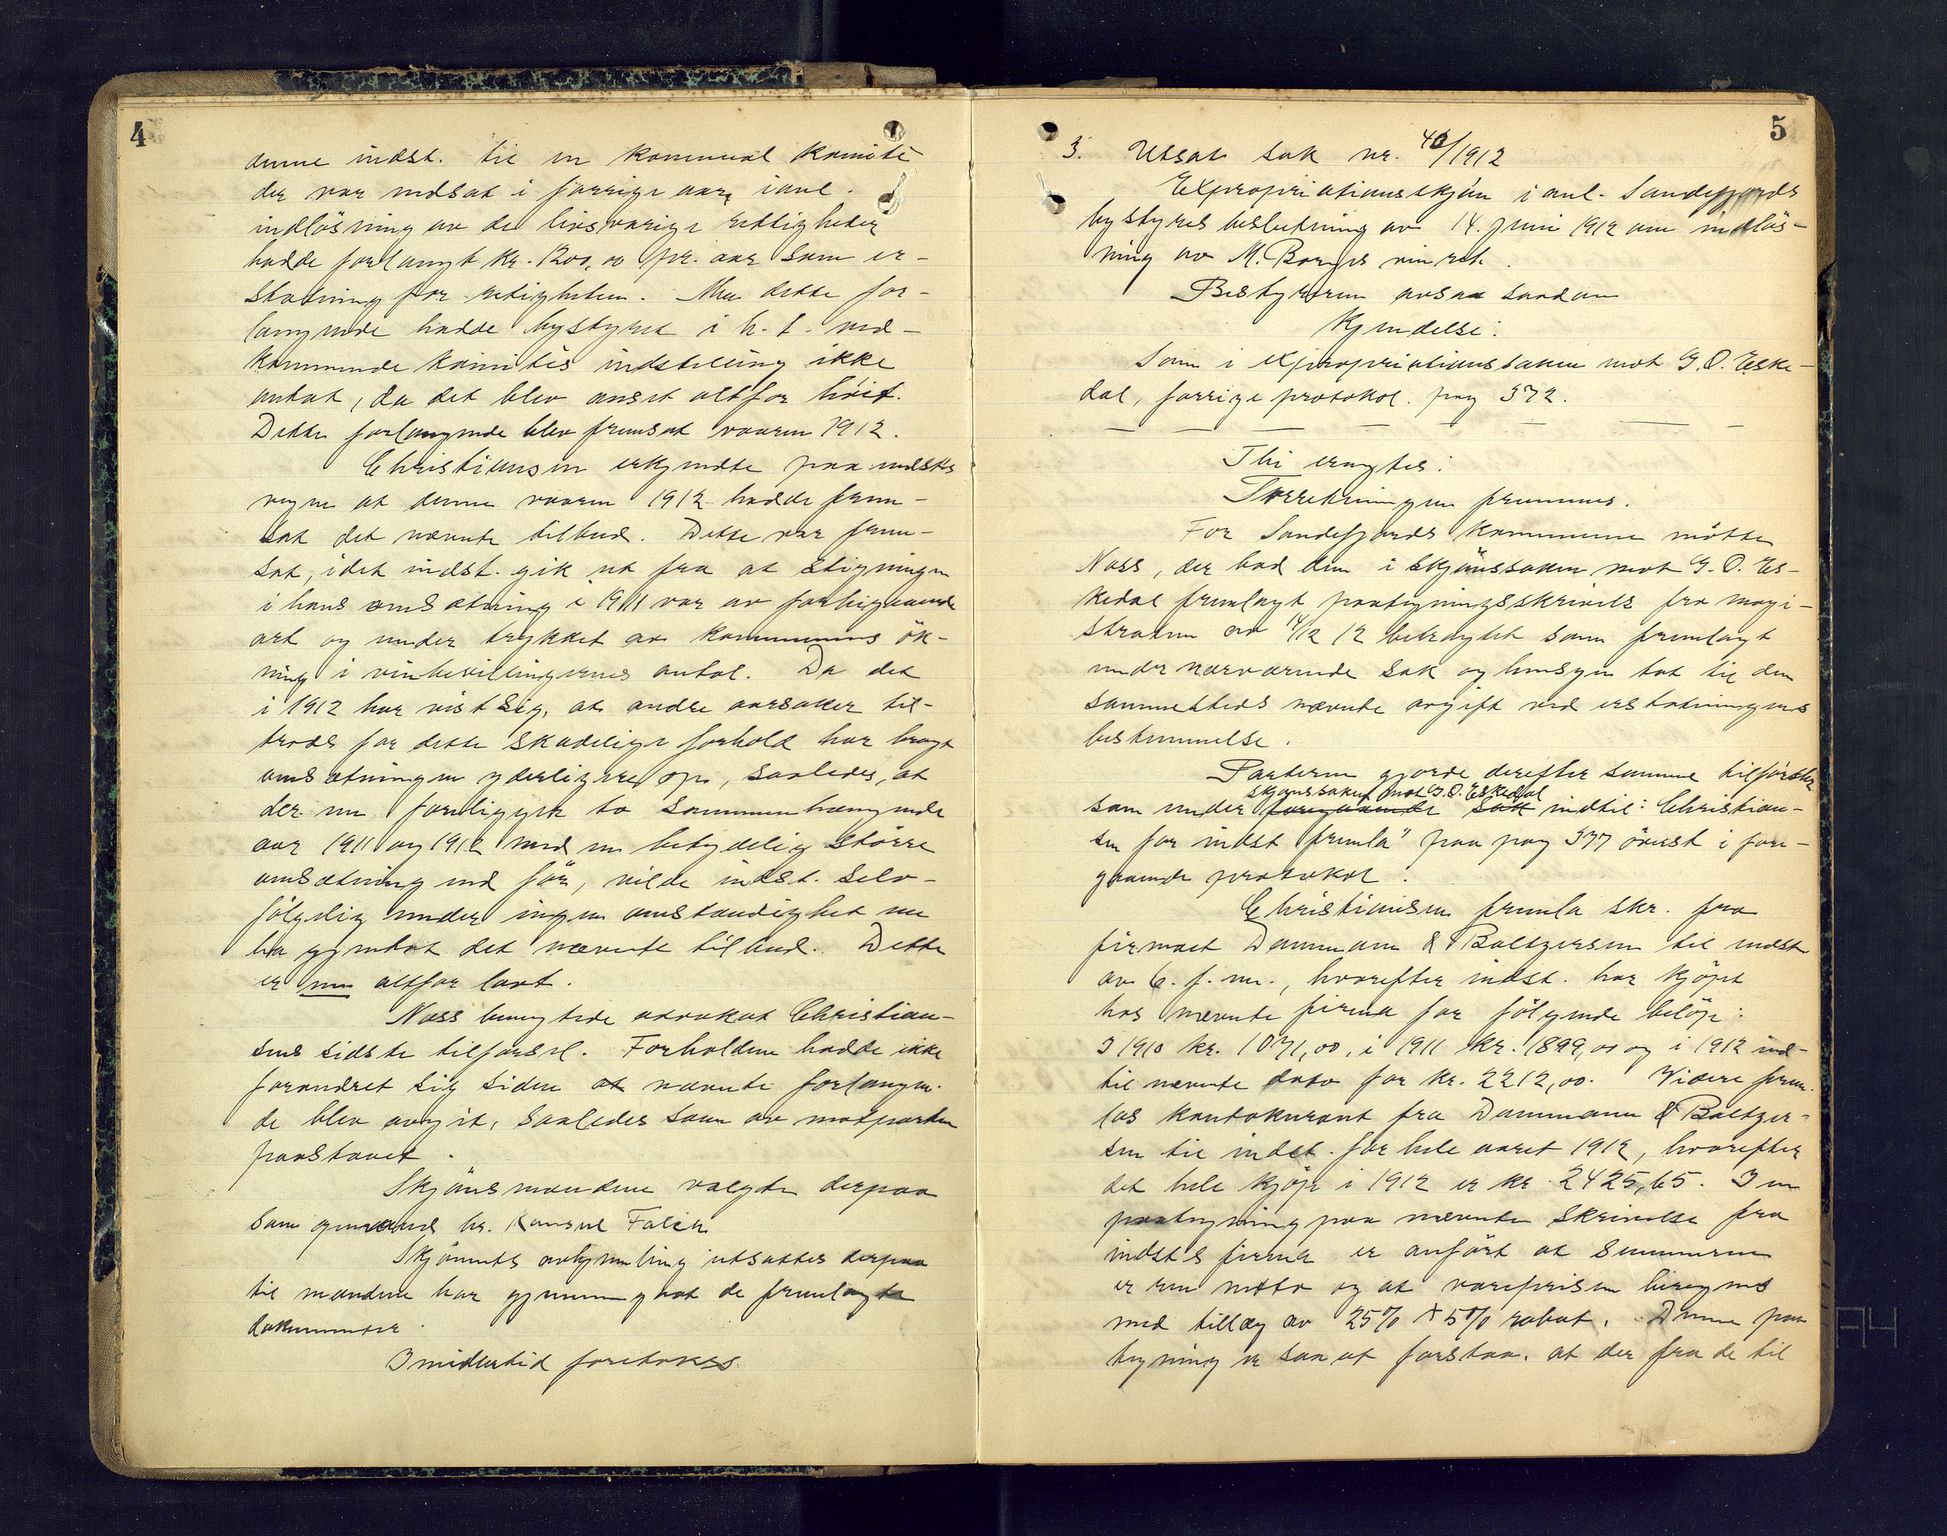 4
denne indst. til en komunal komité
der var nedsat i forrige aar, i anl.
indløsning av de livsvarige rettigheder
hadde forlangt kr. 1200,00 pr. aar som er-
statning for retigheten. Men dette for-
langende hadde bystyret i h. t. ved-
kommende komités indstilling ikke
antat, da det blev anset altfor höit.
Dette forlangende blev fremsat vaaren 1912.
Christiansen erkjendte paa indsts
vegne at denne vaaren 1912 hadde frem-
sat det nævnte tilbud. Dette var frem-
sat, idet indst. gik ut fra at stigningen
i hans omsætning i 1911 var av forbigaaende
art og under trykket av kommunens øk-
ning i vinbevillingernes antal. Da det
i 1912 har vist sig, at andre aarsaker til-
trods for dette skadelige forhold har bragt
omsætningen yderligere op, saaledes, at
der nu foreligger to sammenhængende
aar 1911 og 1912 med en betydelig större
omsætning end för, vilde indst. selv-
følgelig under ingen omstændighet nu
ha gjentat det nævnte tilbud. Dette
er nu altfor lavt.
Nass benegtede advokat Christian-
sens sidste tilførsel. Forholdene hadde ikke
forandret sig siden at nævnte forlangen-
de blev avgit, saaledes som av motparten
paastaaet.
Skjönsmændene valgte derpaa
som opmand hr. konsul Falck
Skjønnets avhjemling utsattes derpaa
til mændene har gjennemgaat de fremlagte
dokumenter.
Imidlertid foretokes
5
3. Utsat sak nr. 40/1912
Expropriationsskjøn i anl. Sandefjords
bystyres beslutning av 14. juni 1912 om indløs-
ning av M. Borges vinret.
Bestyreren avsa saadan
Kjendelse:
Som i expropriationssaken mot G. O. Eske-
dal, forrige protokol. pag 372.
Thi eragtes:
Forretningen fremmes.
For Sandefjords kommune mötte
Nass, der bad den i skjönssaken mot G. O. Es-
kedal fremlagt paategningsskrivelse fra magi-
straten av /12 12 betragtet som fremlagt
under nærværende sak og hensyn tat til den
sammesteds nævnte avgift ved erstatningens
bestemmelse.
Parterne gjorde derefter samme tilførsler
skjønssaken mot G. O. Eskedal
som under foregaaende sak indtil: Christian-
sen for indst fremla" paa pag 377 överst i fore-
gaaende protokol.
Christiansen fremla skr. fra
firmaet Dammann & Baltzersen til indst
av 6. f. m., hvorefter indst. har kjöpt
hos nævnte firma for fölgende belöp:
I 1910 kr. 1071,00, i 1911 kr. 1899,00 og i 1912 ind-
til nævnte dato for kr. 2212,00. Videre frem-
las kontokurant fra Dammann & Baltzer-
sen til indst. for hele aaret 1912, hvorefter
det hele kjöp i 1912 er kr. 2425,65. I en
paategning paa nævnte skrivelse fra
indsts firma er anfört at summerne
er ren netto og at vareprisen beregnes
med tillæg av 25% + 5% rabat. Denne paa-
tegning er saa at forstaa, at der fra de til